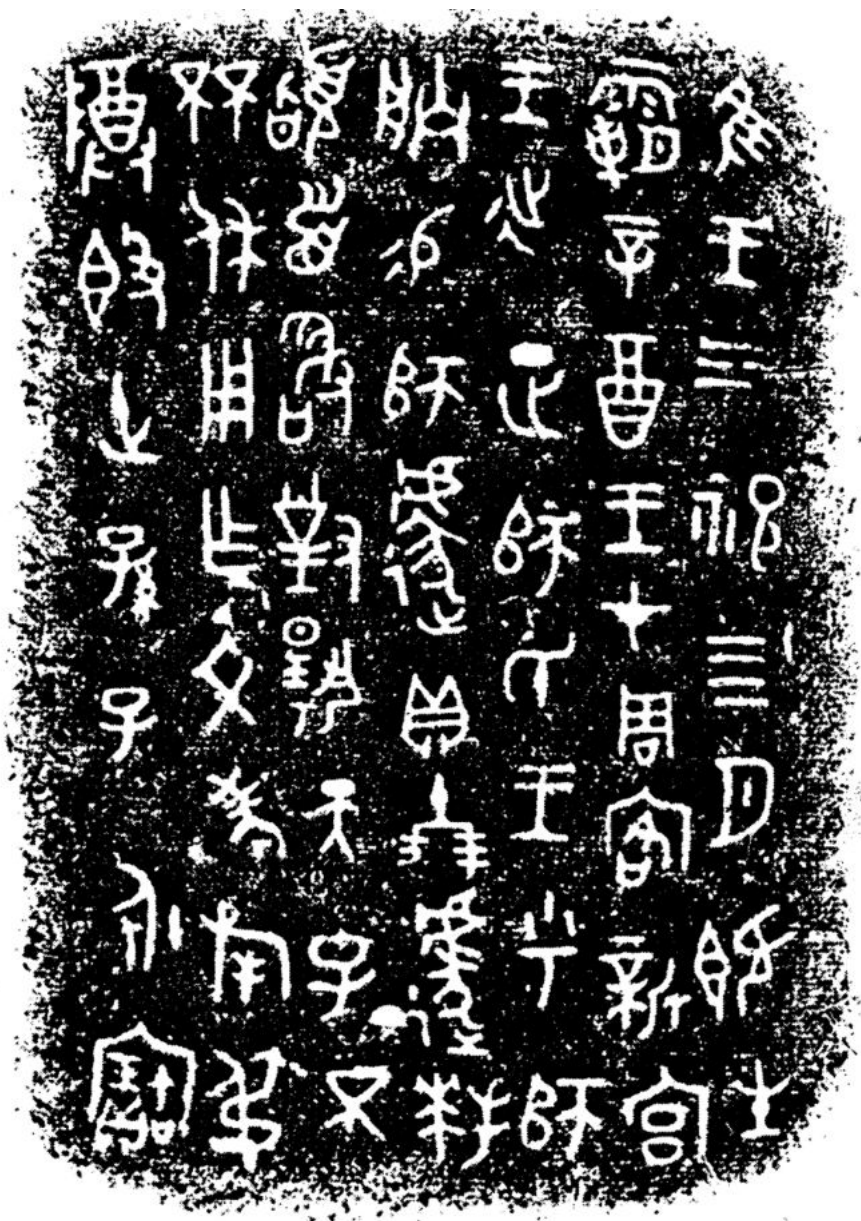 隹王三祀四月既生
霸辛酉王才周客新宮
王𢓊正師氏王乎師
朕易師遽貝十朋遽拜
𩒨首敢對揚天子不
𠀠休用乍文考旄叔
尊簋世孫子永寶